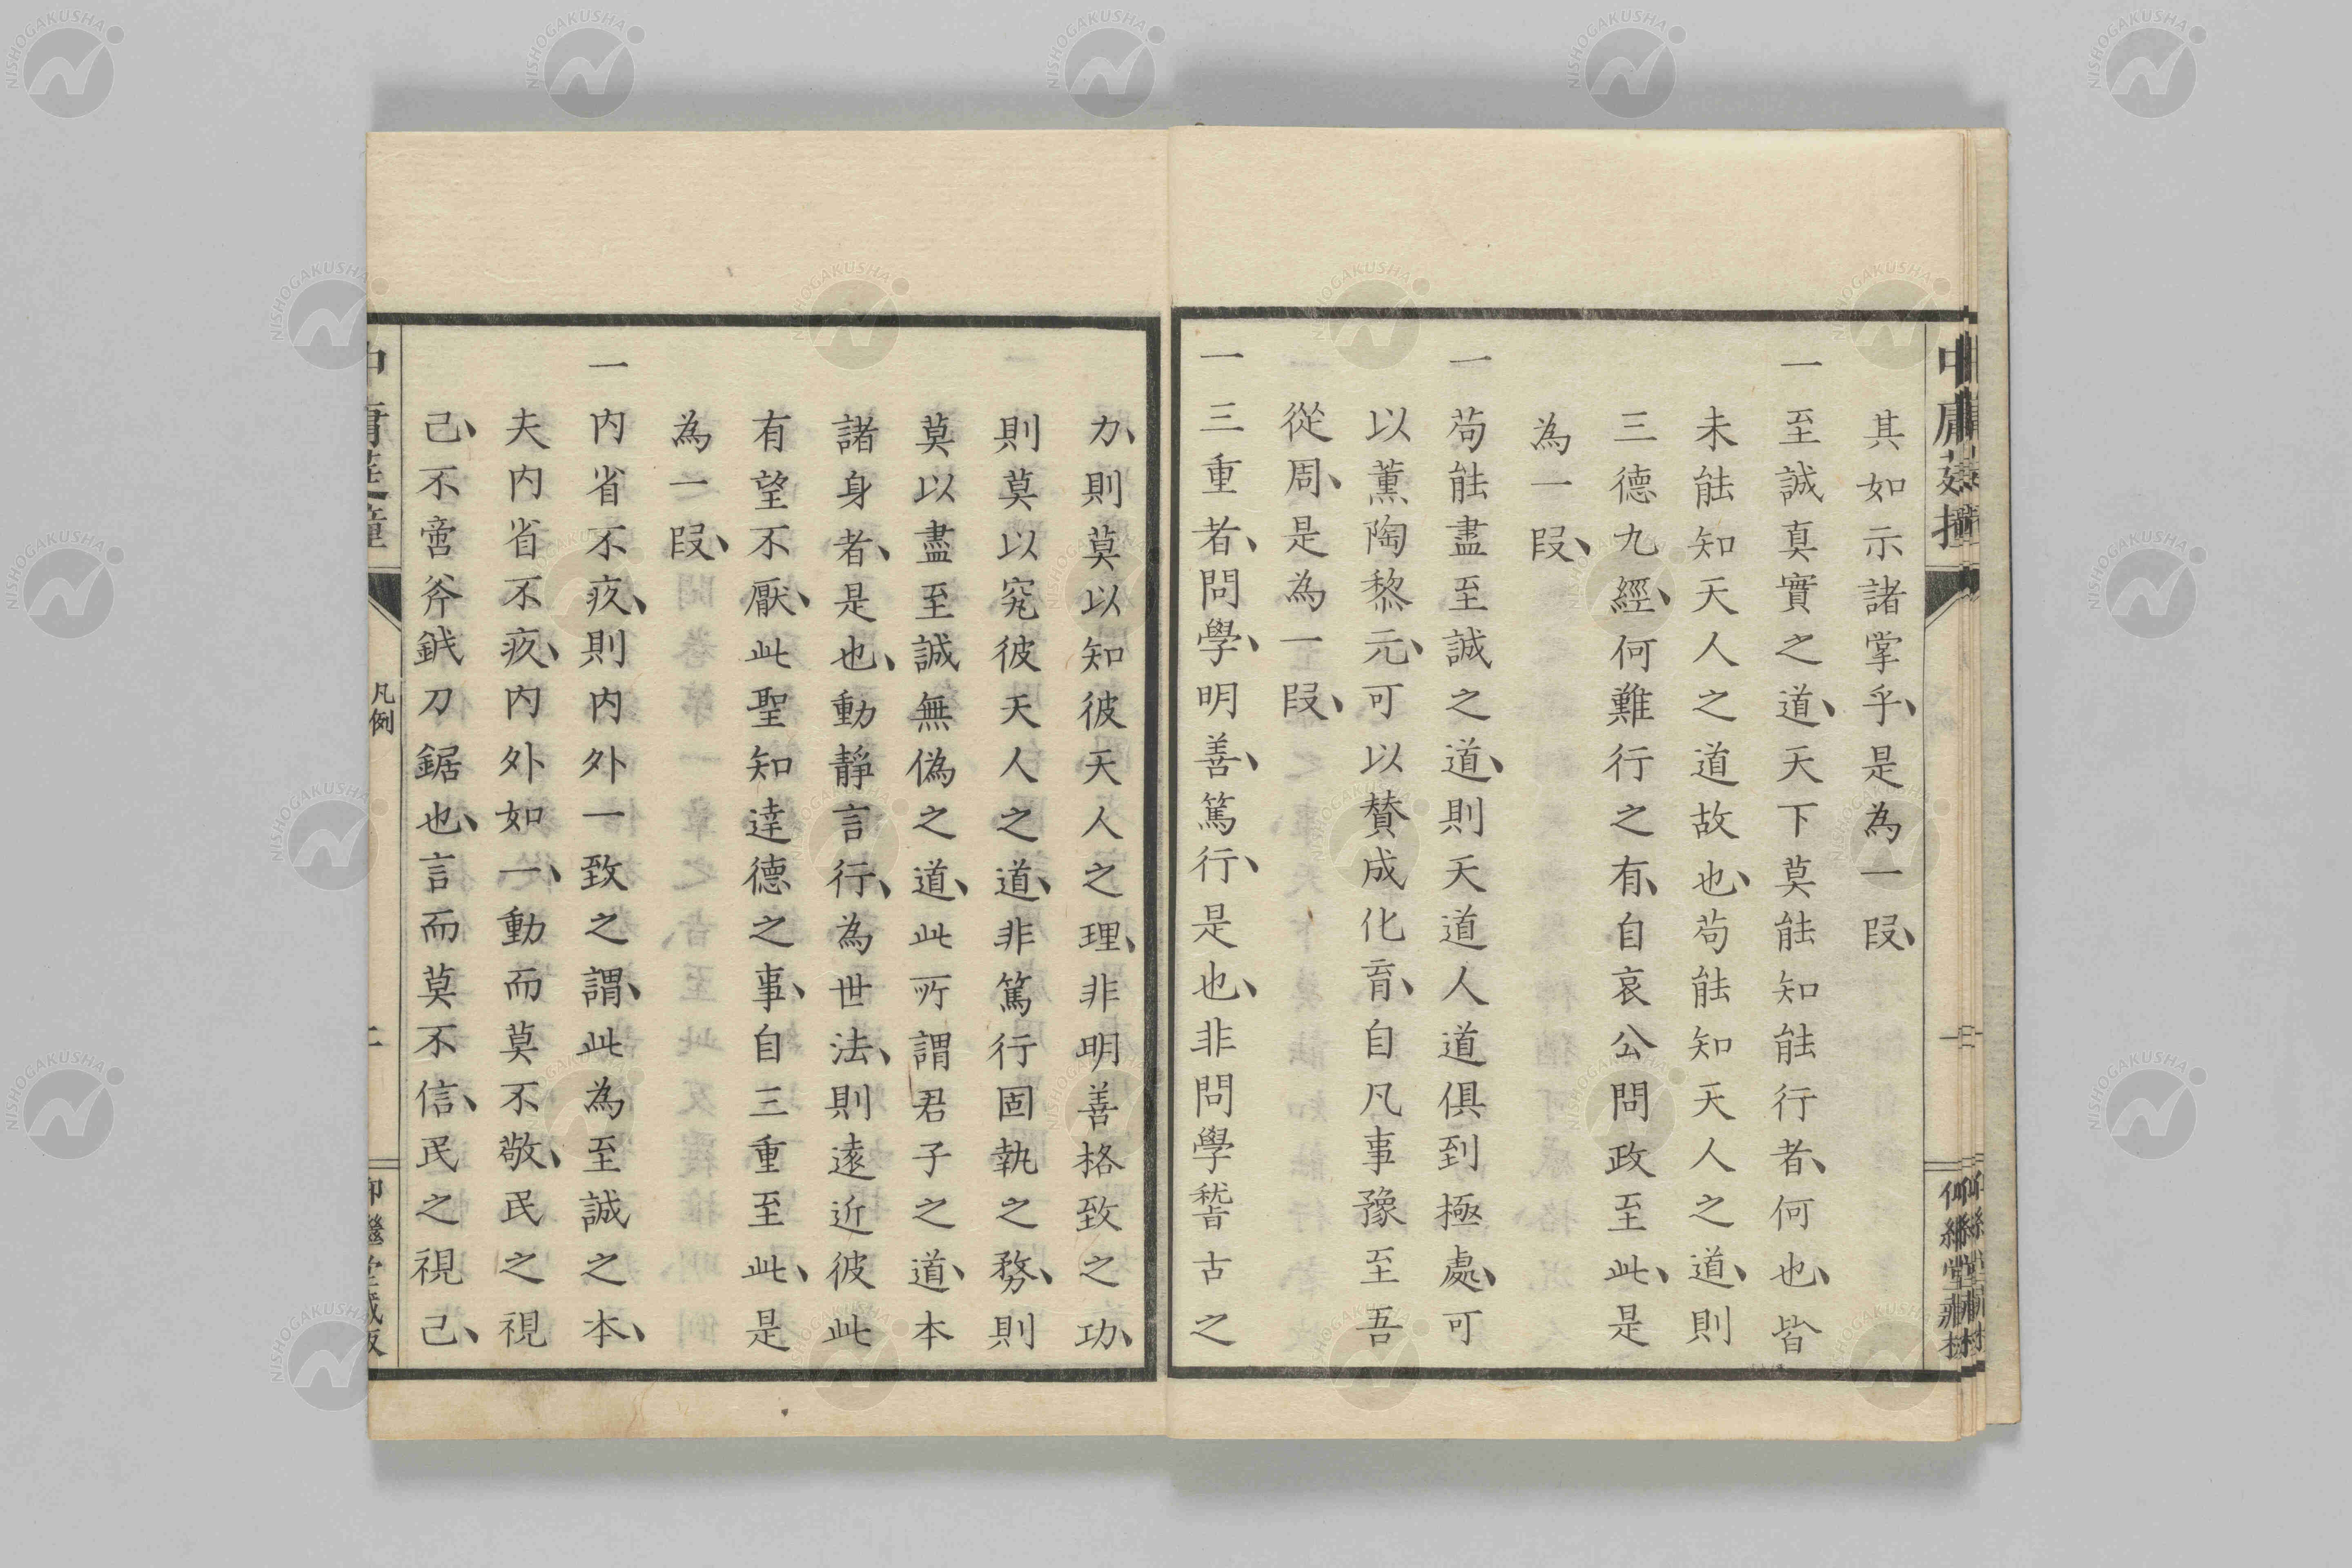 其如示諸掌乎、是為一段、
一至誠真實之道、天下莫能知能行者、何也、皆
未能知天人之道故也、苟能知天人之道、則
三德九經、何難行之有、自哀公問政至此、是
為一段、
一苟能盡至誠之道、則天道人道俱到極處、可
以薰陶黎元、可以贊成化育、自凡事豫至吾
從周、是為一段、
一三重者、問學、明善、篤行、是也、非問學稽古之
力、則莫以知彼天人之理、非明善格致之功、
則莫以究彼天人之道、非篤行固執之務、則
莫以盡至誠無偽之道、此所謂君子之道、本
諸身者、是也、動靜言行、為世法、則遠近彼此
有望不厭、此聖知達德之事、自三重至此、是
為一段、
一內省不疚、則內外一致之謂、此為至誠之本、
夫內省不疚、內外如一、動而莫不敬、民之視
己、不啻斧鉞刀鋸也、言而莫不信、民之視己、
凡例
NISHOGAKUSHA